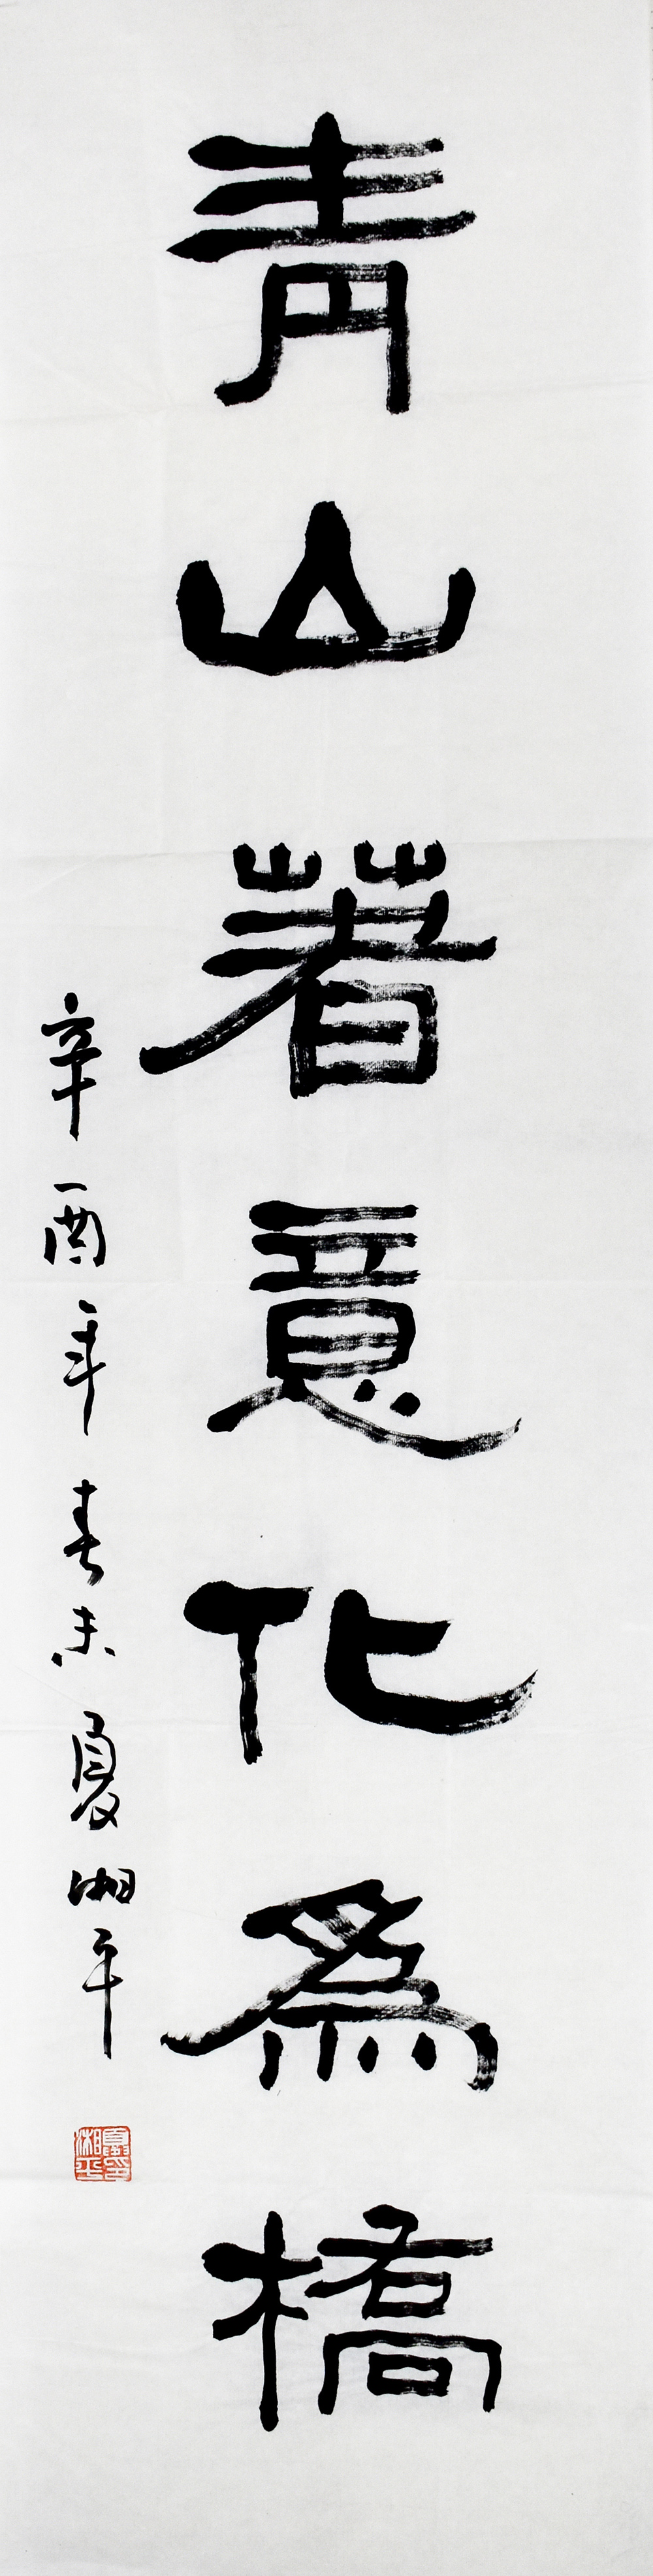 青山著意化為橋
辛酉年春末夏湘平
夏湘平印